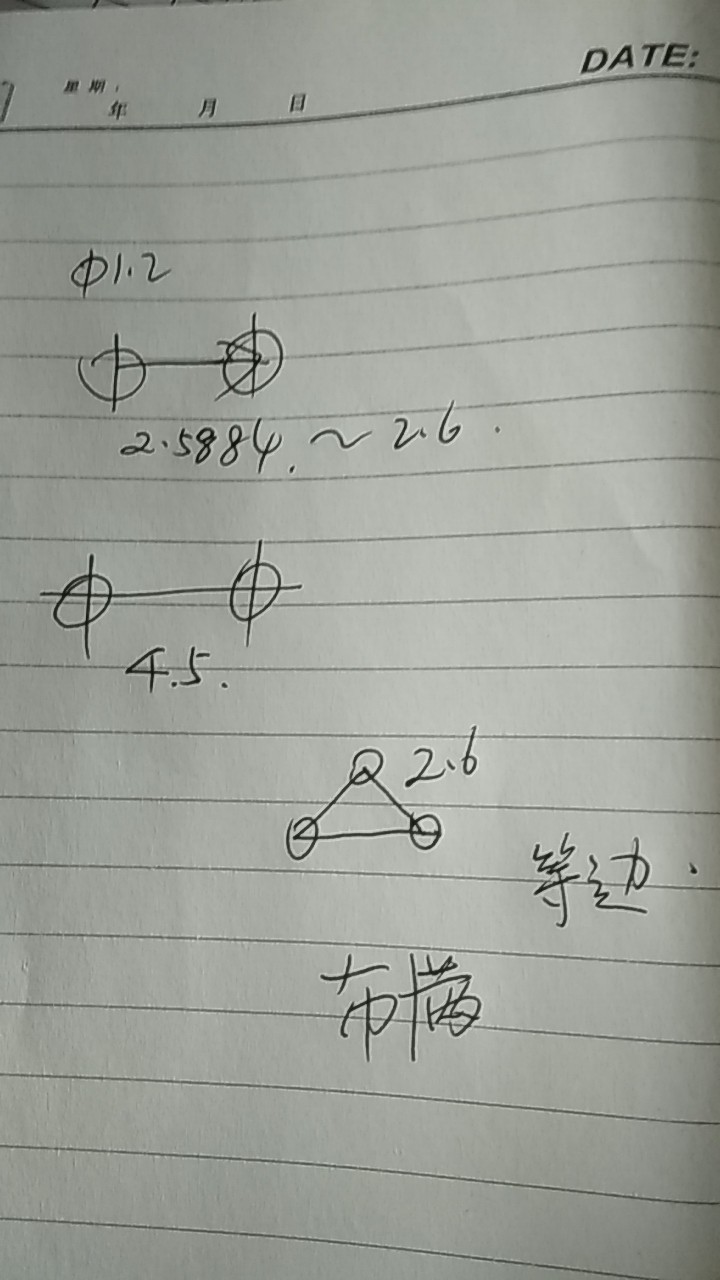 DATE:
星期:
年 月 日
Φ1.2
2.5884. ~ 2.6.
4.5.
2.6
等边.
布满